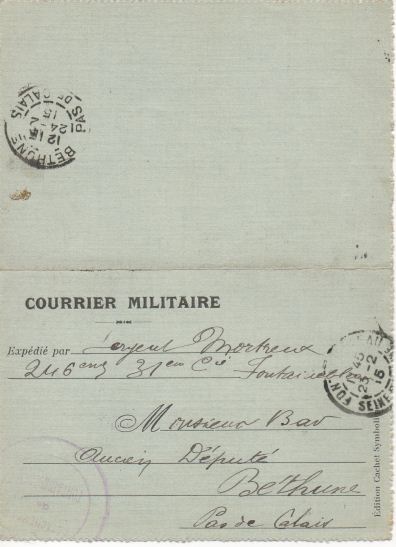 BETHUNE
12 15
24-2
15
PAS DE CALAIS
COURRIER MILITAIRE
Expédié par Sergent Mortreux
246 eme 31 eme Cie Fontainebleau
45
25-2
15
SEINE
Monsieur Bar
Ancien Député
Béthune
Pas de Calais
Édition Cachet Symboli